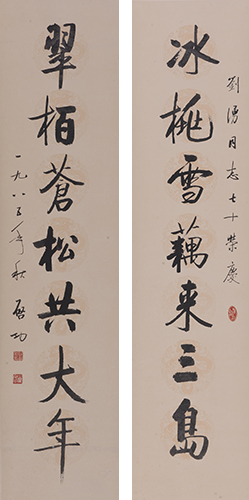 劉湧同志七十榮慶
冰桃雪藕来三島
翠柏蒼松共大年
一九八五年秋 啓功